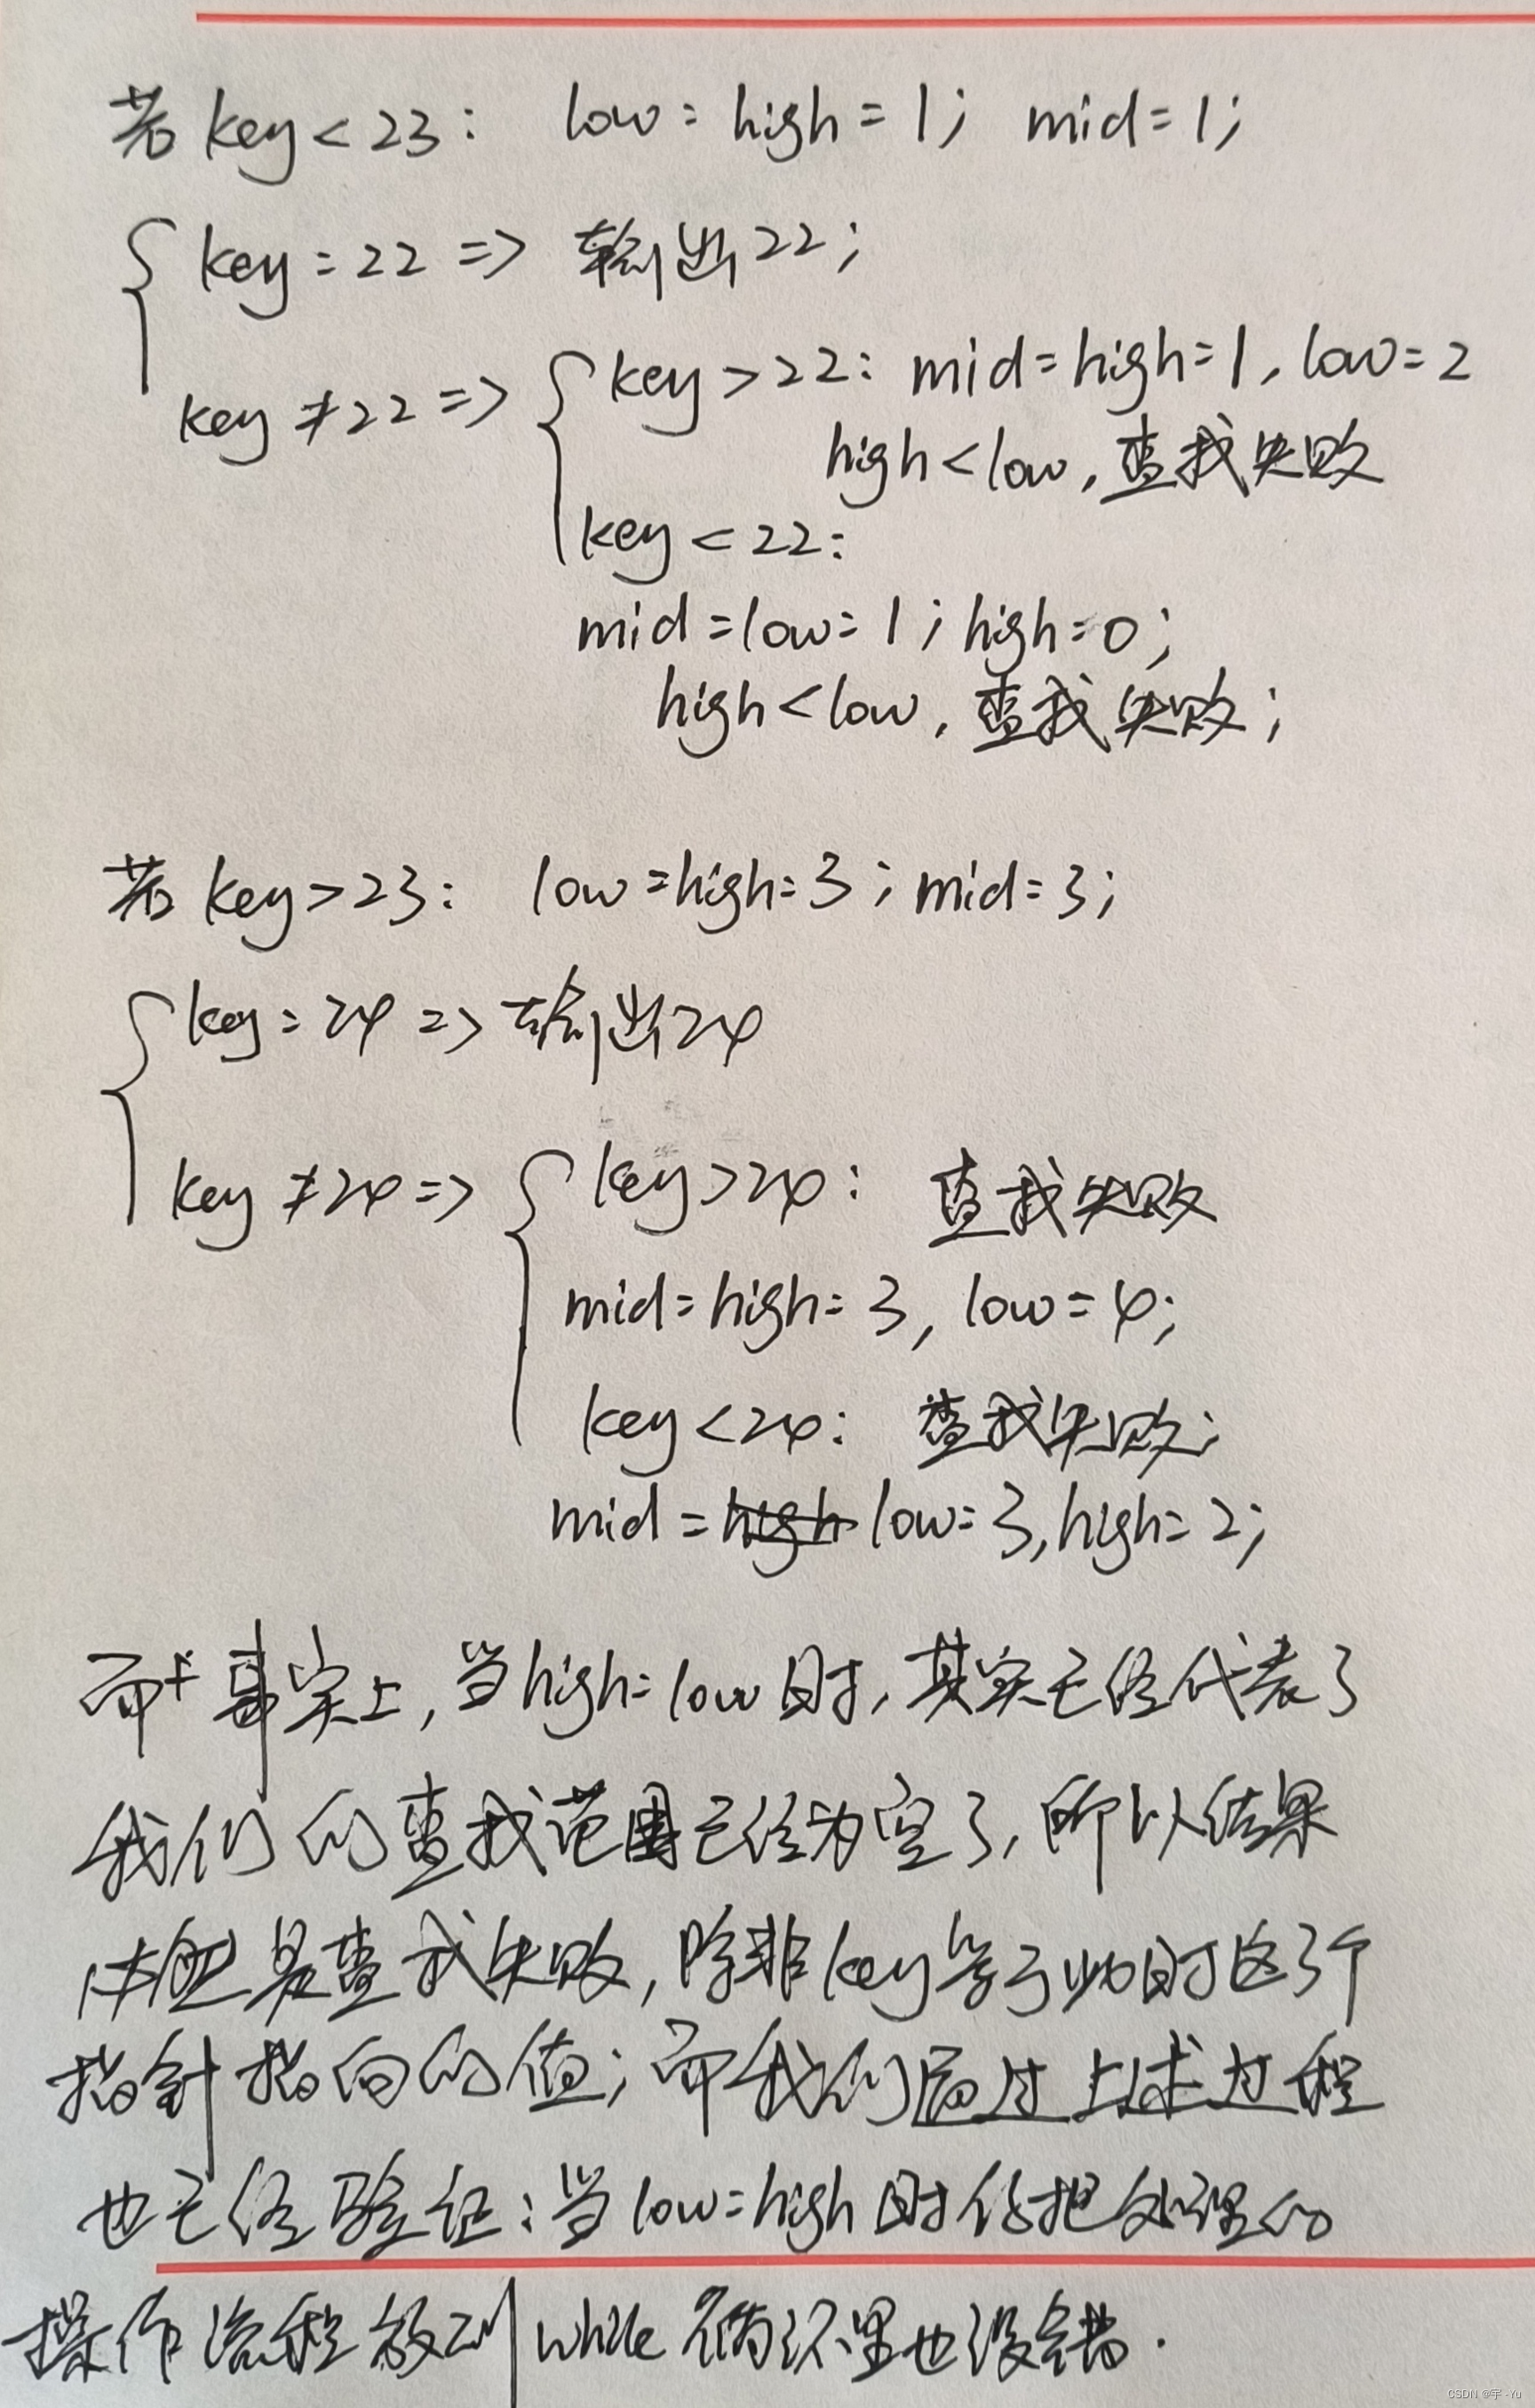 若key<23: low=high=1; mid=1;
key=22 => 输出22;
key≠22 => key>22: mid=high=1, low=2
high<low, 查找失败
key<22:
mid=low=1; high=0;
high<low, 查找失败;
若key>23: low=high=3; mid=3;
key=24 => 输出24
key≠24 => key>24: 查找失败
mid=high=3, low=4;
key<24: 查找失败;
mid=low=3, high=2;
而事实上, 当high=low时, 其实已经代表了
我们的查找范围已经为空了, 所以结果
也是查找失败, 除非key等于此时这3个
指针指向的值; 而我们通过上述过程
也已经验证: 当low=high时你把处理的
操作流程放到while循环里也没错.
CSDN @宇-Yu